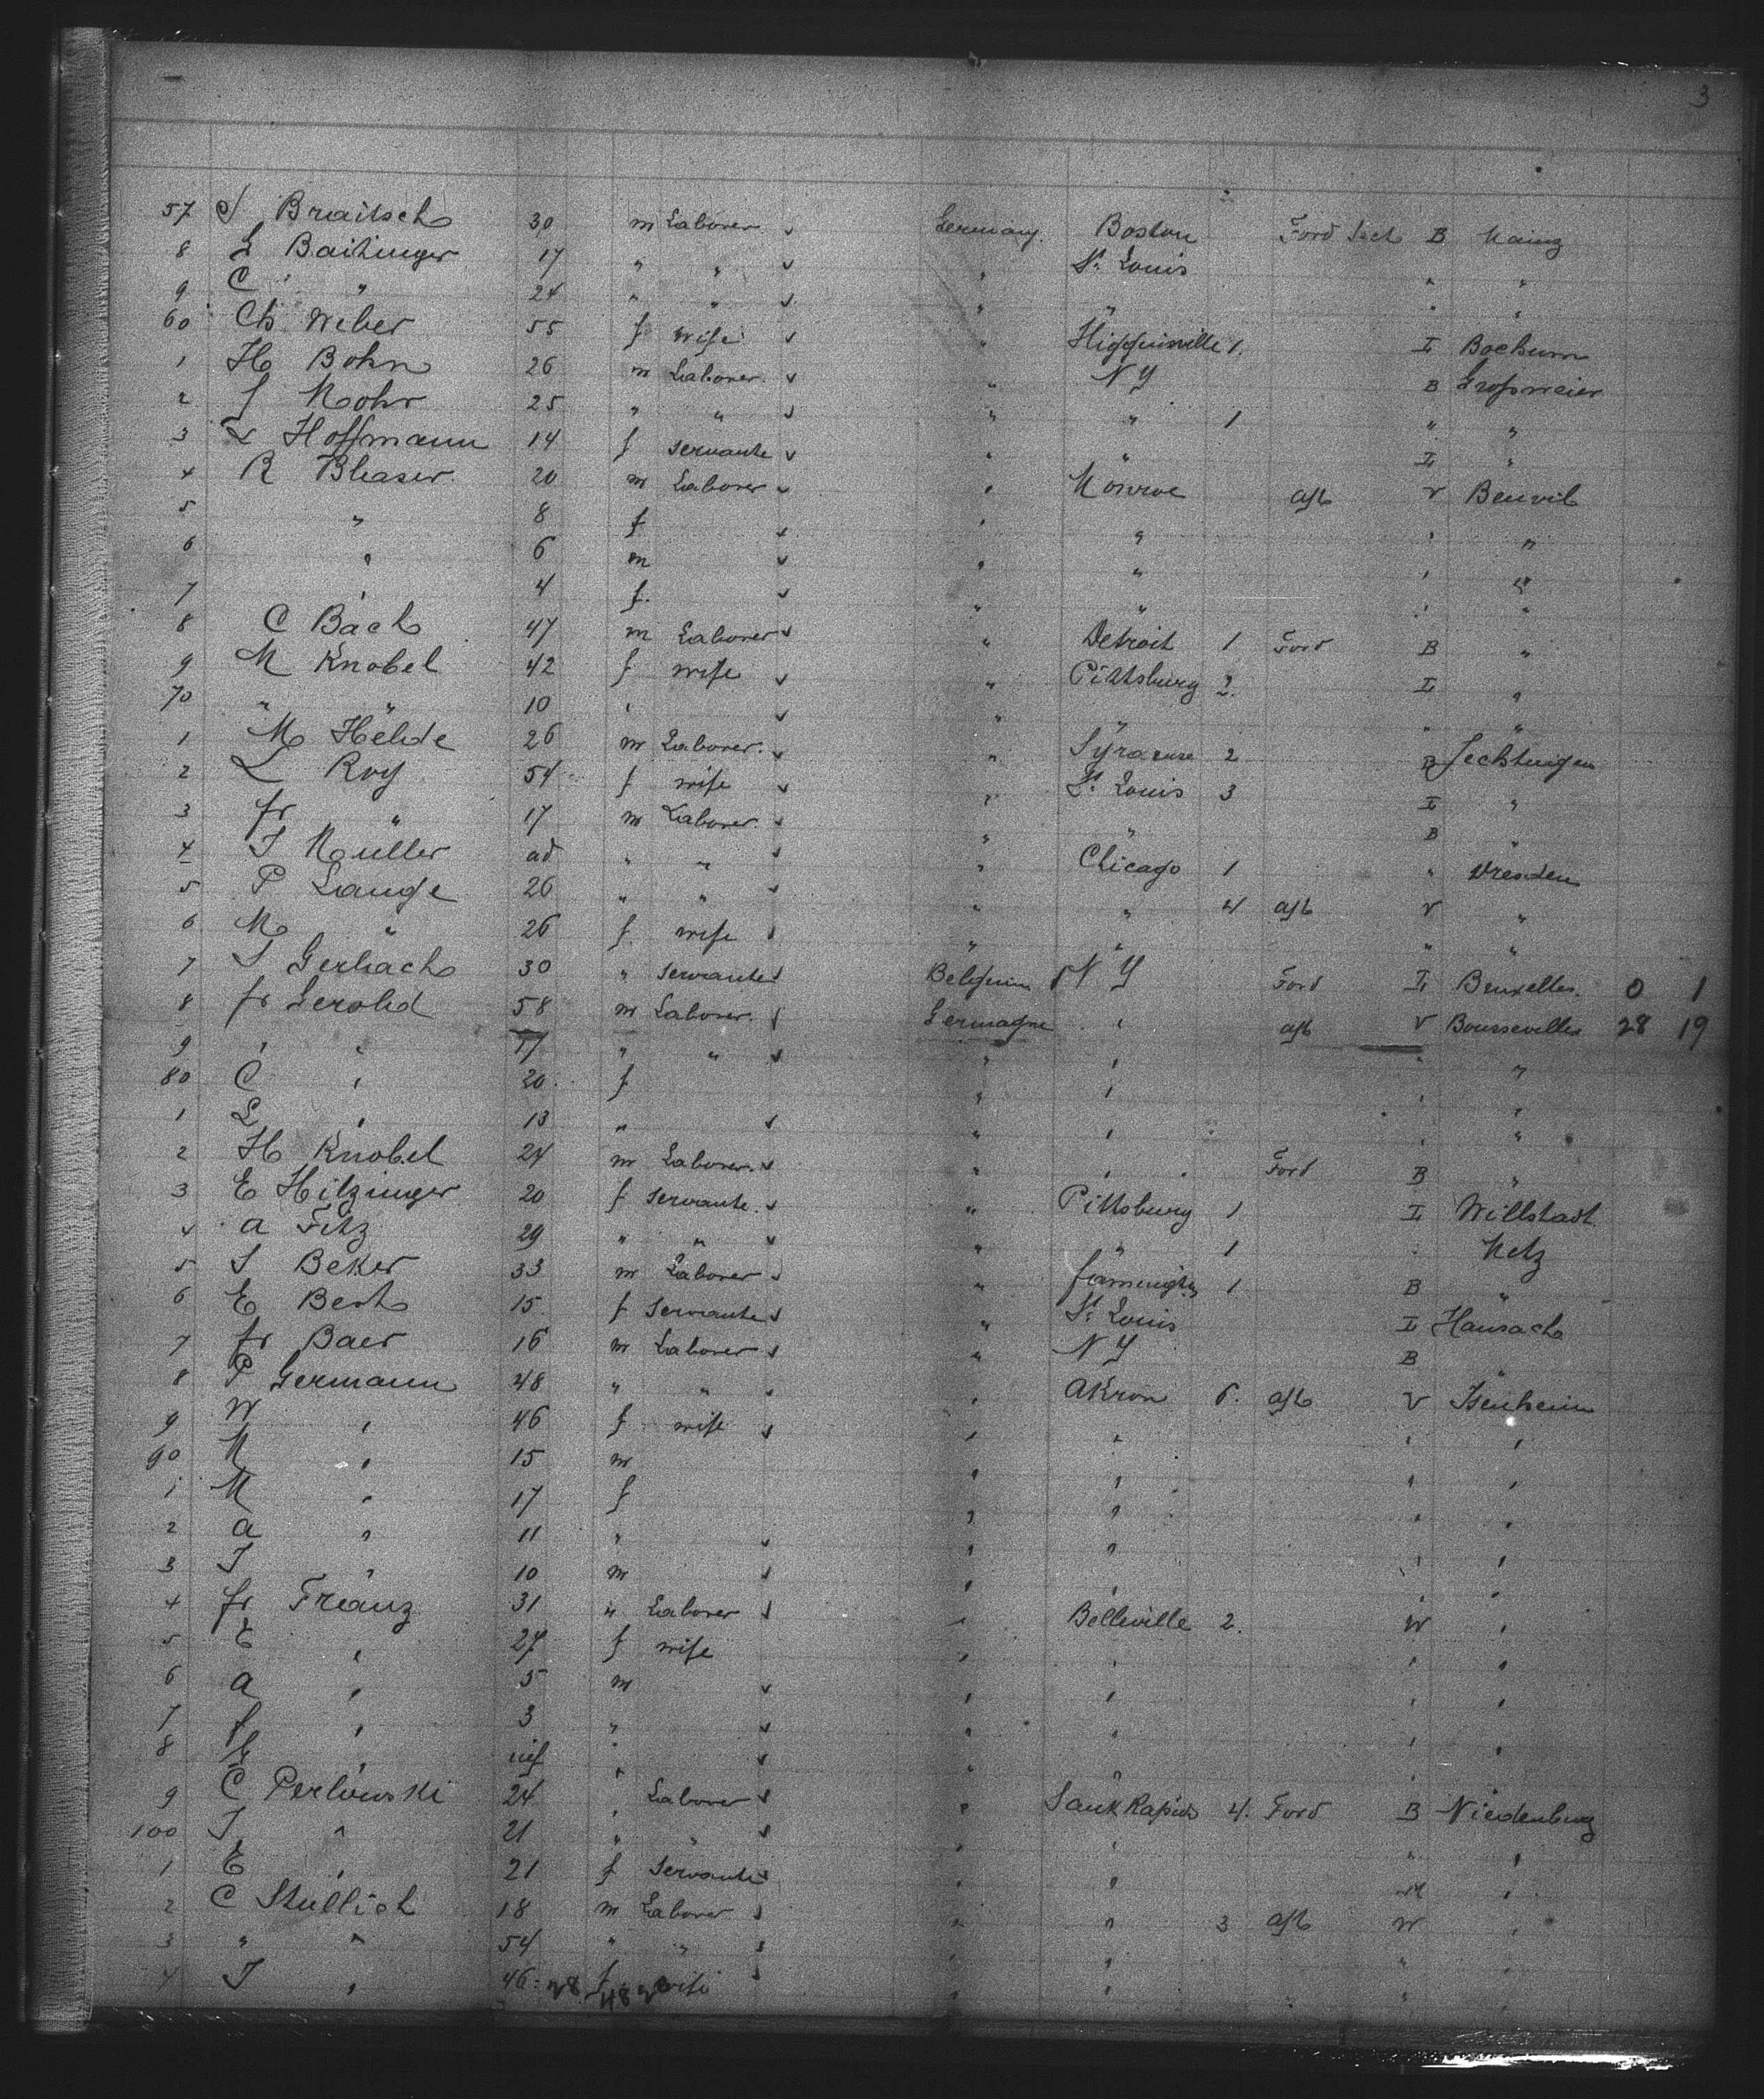 3
57 J Braitsch 30 m Laborer Germany. Boston Ford Sect B Mainz
8 L Baitinger 17 " " " St. Louis " "
9 C " 24 " " " " " "
60 Ch Weber 55 f wife " Higginville 1. I Bochum
1 H Bohn 26 m Laborer. " N Y B Grossmeier
2 J Mohr 25 " " " " 1 " "
3 L Hoffmann 14 f servante " " I "
4 R Blaser 20 m Laborer " Monroe aft V
5 " 8 f " " " "
6 " 6 m " " " "
7 " 4 f. " " " "
8 C Bach 47 m Laborer " Detroit 1 Ford B "
9 M Knobel 42 f wife " Pittsburg 2. I "
70 " " 10 " " " "
1 M Helde 26 m Laborer. " Syracuse 2 B Jechtingen
2 L Roy 54 f wife " St. Louis 3 I "
3 fr " 17 m Laborer. " " B "
4 J Muller ad " " " Chicago 1 " Dresden
5 P Lange 26 " " " " 4 aft V "
6 M " 26 f. wife " " " "
7 J Gerbach 30 " servante Belgium N Y Ford I Bruxelles. 0 1
8 fr Gerold 58 m Laborer. Germagne " aft V Bousseviller 28 19
9 " " 17 " " " " " "
80 C " 20. f " " " "
1 L " 13 " " " " "
2 H Knobel 24 m Laborer. " " Ford B "
3 E Hitzinger 20 f servante. " Pittsburg 1 I Willstadt
4 a Fitz 29 " " " " 1 " Metz
5 J Beker 33 m Laborer " 1 B "
6 E Bert 15. f servante " St. Louis I Hausach
7 fr Baer 16 m Laborer " N Y B "
8 P Germann 48 " " " Akron 6. aft V Isenheim
9 W " 46 f wife " " " "
90 M " 15 m " " " "
1 M " 17 f " " " "
2 a " 11 " " " " "
3 J " 10 m " " " "
4 fr Franz 31 " Laborer " Belleville 2. W "
5 E " 27 f wife " " " "
6 a " 5 m " " " "
7 f " 3 " " " " "
8 " " " " " "
9 C Perlowski 24 " Laborer " Sauk Rapids 4. Ford B Niedenburg
100 J " 21 " " " " " "
1 E " 21 f servante " " "
2 C Stullich 18 m Laborer " " 3 aft W "
3 " " 54 " " " " " "
4 J " 46 28 f 48 wife " " " "